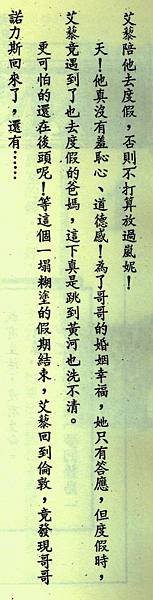 艾藜陪他去度假，否則不打算放過嵐妮！
天！他真沒有羞恥心、道德感！為了哥哥的婚姻幸福，她只有答應，但度假時，
艾藜竟遇到了也去度假的爸媽，這下真是跳到黃河也洗不清。
更可怕的還在後頭呢！等這個一塌糊塗的假期結束，艾藜回到倫敦，竟發現哥哥
諾力斯回來了，還有……